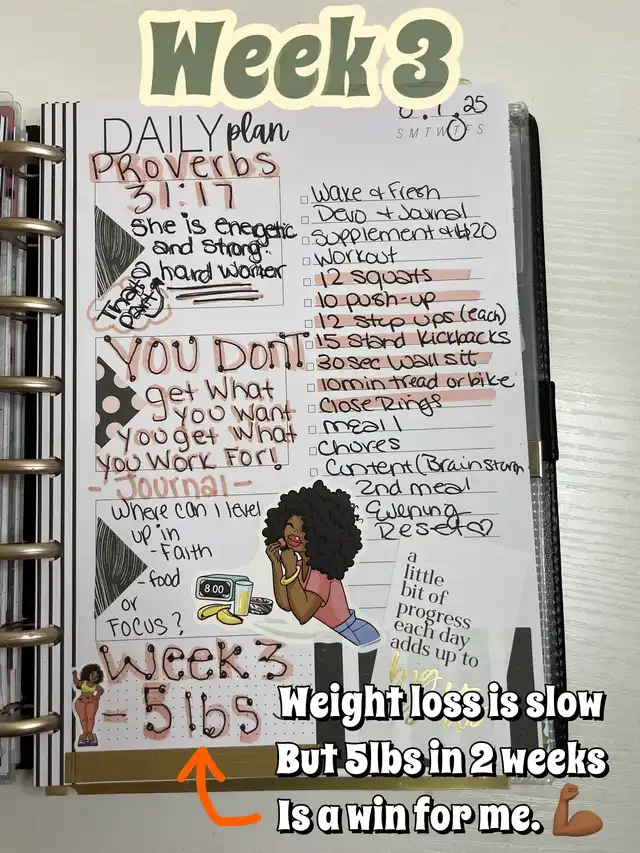 Week 3
25
DAILY plan
S M T W T F S
Proverbs
31:17
She is energetic
and strong..
a hard worker
That
part
YOU DON'T
get What
you Want
you get What
you Work For!
- Journal -
Where can I level
up in
- Faith
- food
or
FOCUS?
8 00
Week 3
- 5 lbs
Wake & Fresh
Devo & Journal
Supplement & H20
Workout
12 Squats
10 push-up
12 Step ups (each)
15 Stand Kickbacks
30 sec Wall sit
10 min tread or bike
Close Rings
meal 1
Chores
Content (Brainstorm
2nd meal
Evening
Reset
a
little
bit of
progress
each day
adds up to
big
Weight loss is slow
But 5lbs in 2 weeks
Is a win for me.